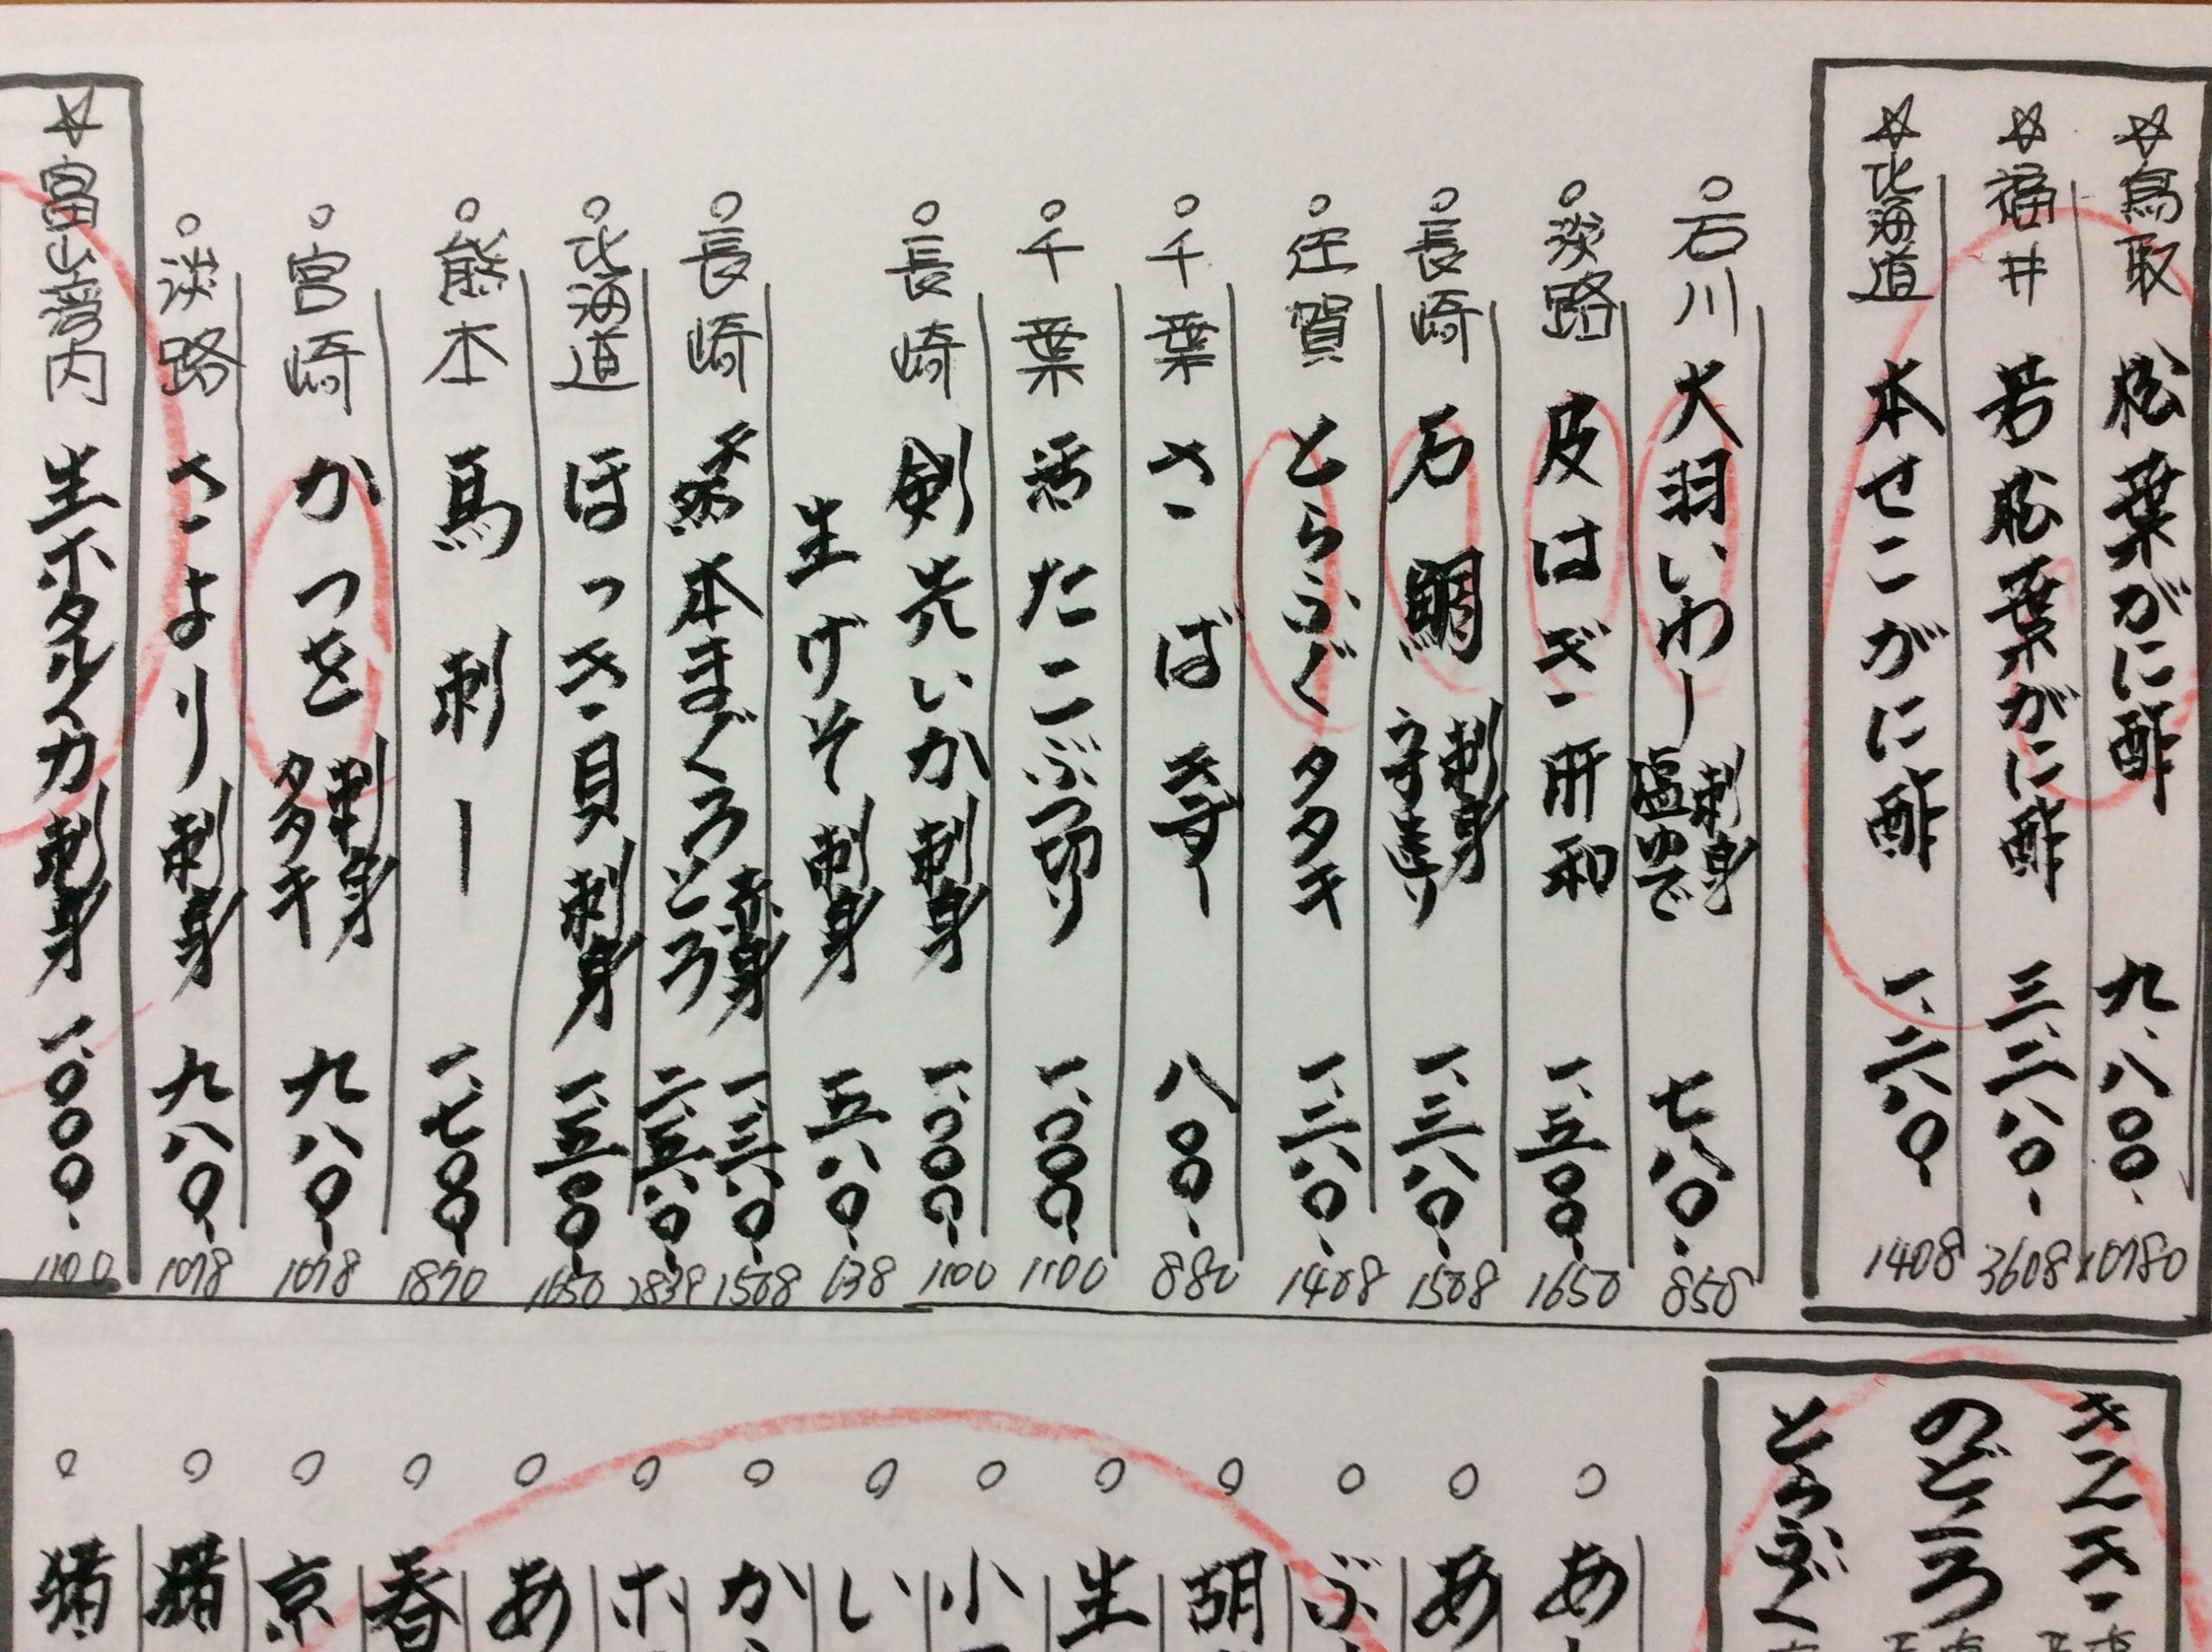 ☆鳥取 松葉がに酢 九、八〇〇、 10780
☆福井 若松葉がに酢 三、二八〇、 3608
☆北海道 本せこがに酢 一、二八〇、 1408
○石川 大羽いわし 刺身 塩ゆで 七八〇、 858
○淡路 皮はぎ肝和 一、五〇〇、 1650
○長崎 石鯛 刺身 寺造り 一、三八〇、 1508
○佐賀 とらふぐタタキ 一、二八〇、 1408
○千葉 さば寿し 八〇〇、 880
○千葉 活たこぶつ切り 一、〇〇〇、 1100
○長崎 剣先いか刺身 一、〇〇〇、 1100
生げそ刺身 五八〇、 638
○長崎 本まぐろ 赤身 一、三八〇、 1508
とろ 二、五八〇、 2838
○北海道 ほっき貝刺身 一、五〇〇、 1650
○熊本 馬刺し 一、七〇〇、 1870
○宮崎 かつを 刺身 タタキ 九八〇、 1078
○淡路 さより刺身 九八〇、 1078
☆富山湾内 生ホタルイカ刺身 一、〇〇〇、 1100
きんき
のどぐろ
とらふぐ
○あ
○あ
○ぶ
○胡
○生
○小
○い
○か
○ホ
○あ
○春
○京
○猪
○猪